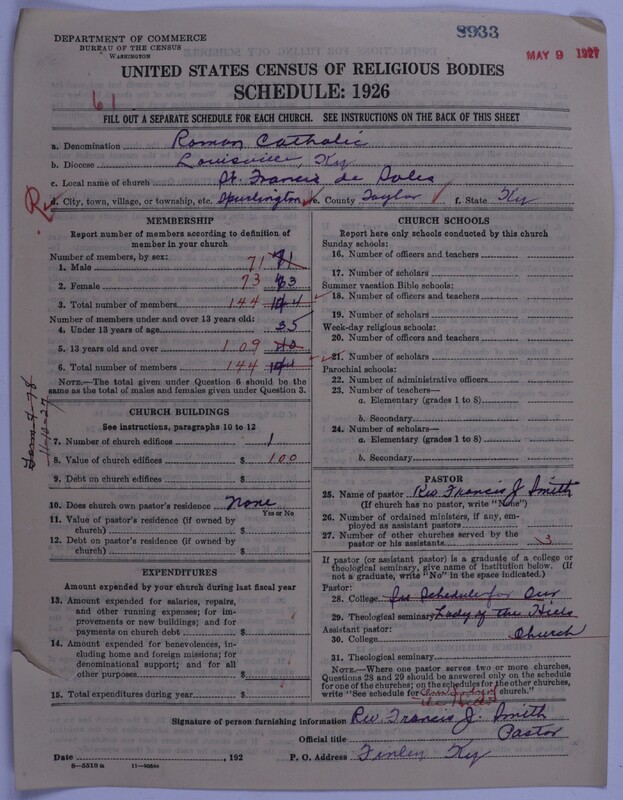 DEPARTMENT OF COMMERCE
BUREAU OF THE CENSUS
WASHINGTON
8933
MAY 9 1927
UNITED STATES CENSUS OF RELIGIOUS BODIES
SCHEDULE: 1926
61
FILL OUT A SEPARATE SCHEDULE FOR EACH CHURCH. SEE INSTRUCTIONS ON THE BACK OF THIS SHEET
a. Denomination Roman Catholic
b. Diocese Louisville, Ky
c. Local name of church St. Francis de Sales
R
d. City, town, village, or township, etc. Spurlington e. County Taylor f. State Ky
MEMBERSHIP
Report number of members according to definition of
member in your church
Number of members, by sex:
1. Male 71 71
2. Female 73 63
3. Total number of members 144
Number of members under and over 13 years old:
4. Under 13 years of age 35
5. 13 years old and over 109
6. Total number of members 144
NOTE.—The total given under Question 6 should be the
same as the total of males and females given under Question 3.
Form 7-78
11-12-27
CHURCH BUILDINGS
See instructions, paragraphs 10 to 12
7. Number of church edifices 1
8. Value of church edifices $ 100
9. Debt on church edifices $
10. Does church own pastor's residence? None
Yes or No
11. Value of pastor's residence (if owned by
church) $
12. Debt on pastor's residence (if owned by
church) $
EXPENDITURES
Amount expended by your church during last fiscal year
13. Amount expended for salaries, repairs,
and other running expenses; for im-
provements or new buildings; and for
payments on church debt $
14. Amount expended for benevolences, in-
cluding home and foreign missions; for
denominational support; and for all
other purposes $
15. Total expenditures during year $
CHURCH SCHOOLS
Report here only schools conducted by this church
Sunday schools:
16. Number of officers and teachers
17. Number of scholars
Summer vacation Bible schools:
18. Number of officers and teachers
19. Number of scholars
Week-day religious schools:
20. Number of officers and teachers
21. Number of scholars
Parochial schools:
22. Number of administrative officers
23. Number of teachers—
a. Elementary (grades 1 to 8)
b. Secondary
24. Number of scholars—
a. Elementary (grades 1 to 8)
b. Secondary
PASTOR
25. Name of pastor Rev Francis J Smith
(If church has no pastor, write "None")
26. Number of ordained ministers, if any, em-
ployed as assistant pastors
27. Number of other churches served by the
pastor or his assistants 3
If pastor (or assistant pastor) is a graduate of a college or
theological seminary, give name of institution below. (If
not a graduate, write "No" in the space indicated.)
Pastor:
28. College See Schedule for Our
29. Theological seminary Lady of the Hills
Assistant pastor:
30. College Church
31. Theological seminary
NOTE.—Where one pastor serves two or more churches,
Questions 28 and 29 should be answered only on the schedule
for one of the churches; on the schedules for the other churches,
write "See schedule for church."
Signature of person furnishing information Rev. Francis J. Smith
Official title Pastor
Date , 192 P. O. Address Finley Ky
8—5510a